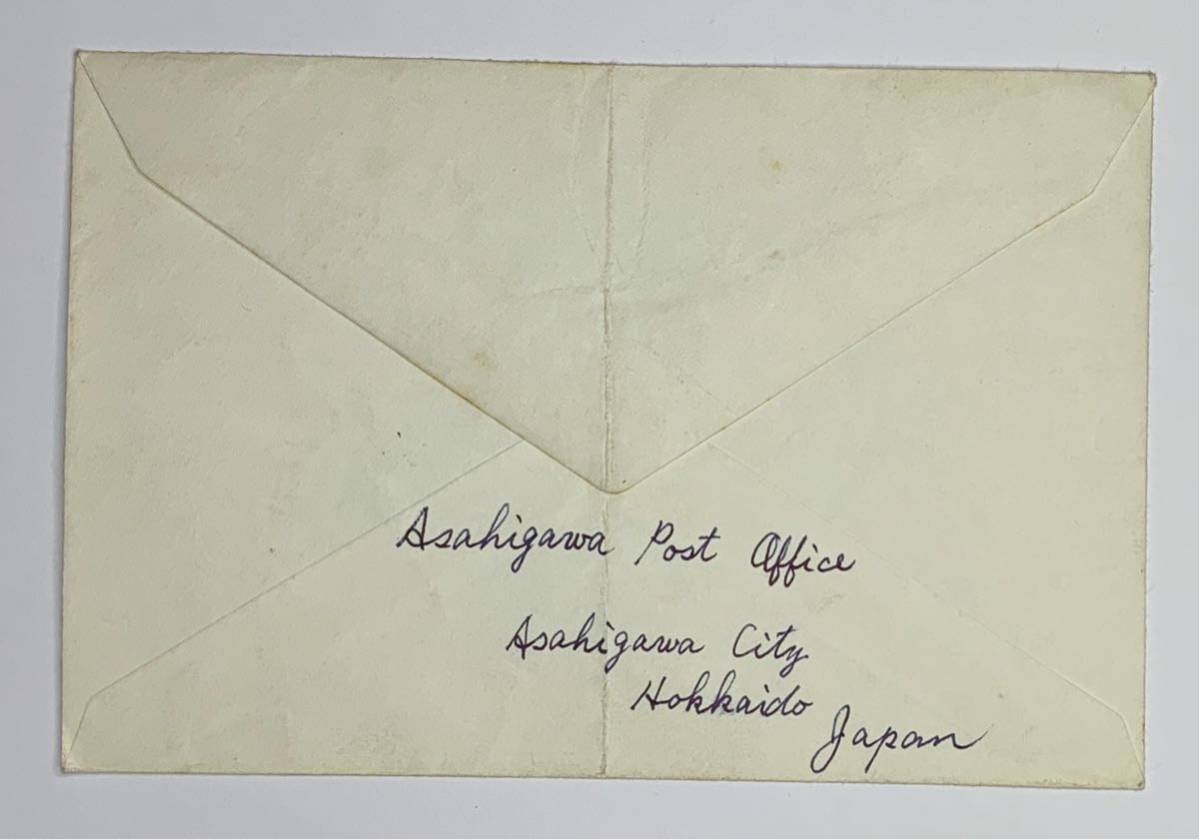 Asahigawa Post Office
Asahigawa City
Hokkaido
Japan